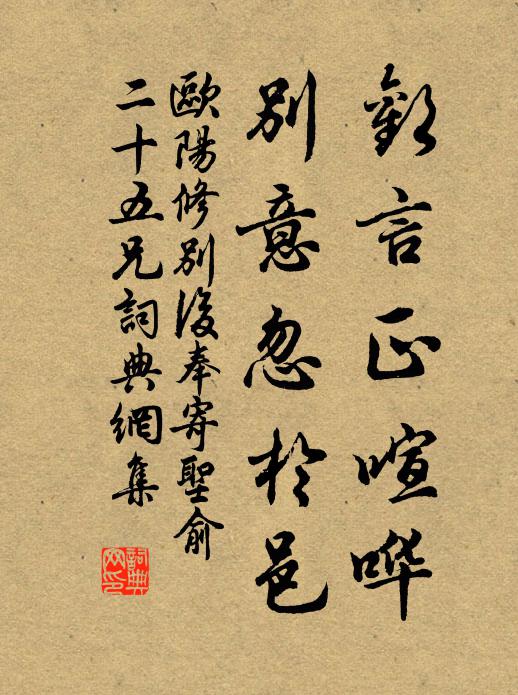 歡言正喧嘩
別意忽於邑
歐陽修別後奉寄聖俞
二十五兄詞典網集
詞典網印